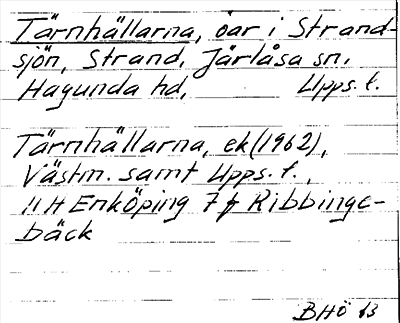 Tärnhällarna, öar i Strand-
sjön, Strand, Järlåsa sn.
Hagunda hd, Upps. l.
Tärnhällarna, ek (1962),
Västm. samt Upps. l.,
11H Enköping 7f Ribbinge-
bäck
BHÖ 63